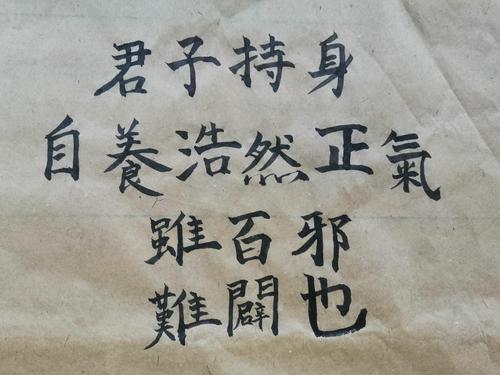 君子持身
自養浩然正氣
雖百邪
難闢也